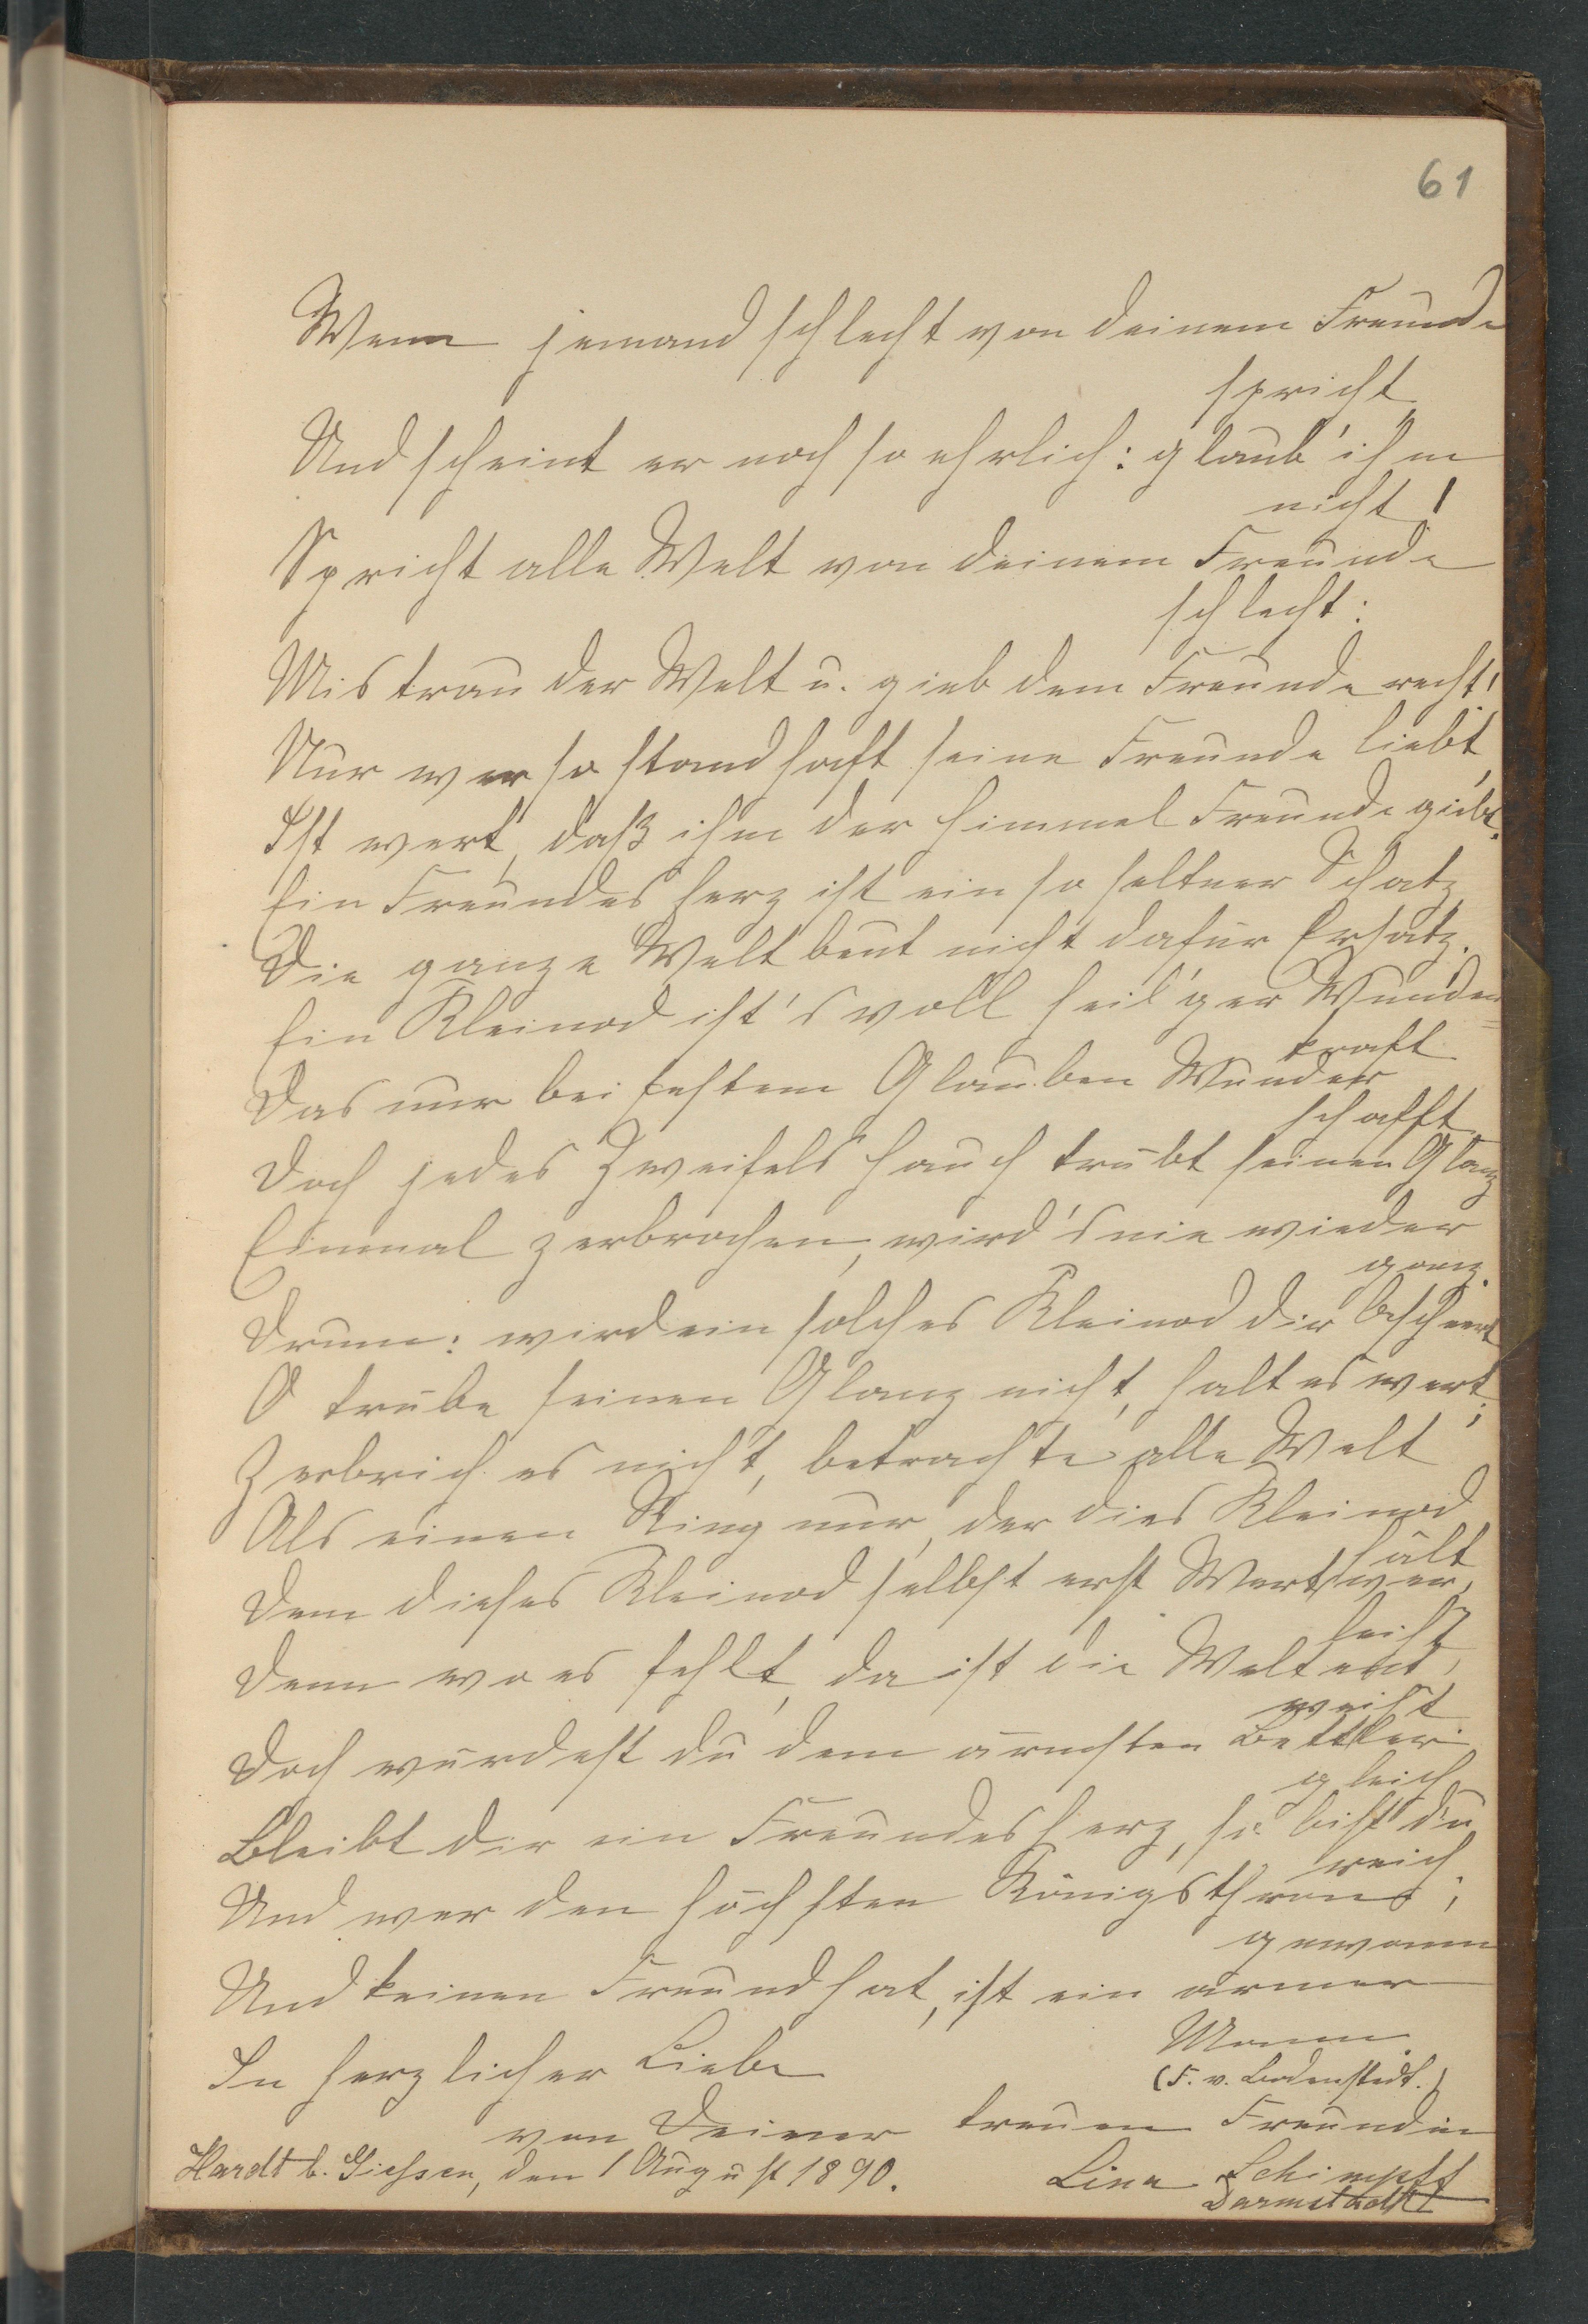 61
Wenn jemand schlecht von deinem Freunde
spricht
Und scheint er noch so ehrlich: glaub' ihm
nicht!
Spricht alle Welt von deinem Freunde
schlecht:
Mistrau der Welt u. gieb dem Freunde recht!
Nur wer so standhaft seine Freunde liebt,
Ist wert, daß ihm der Himmel Freunde giebt.
Ein Freundesherz ist ein so seltner Schatz,
Die ganze Welt beut nicht dafür Ersatz.
Ein Kleinod ist's voll heil'ger Wunder=
kraft
Das nur bei festem Glauben Wunder
schafft
Doch jedes Zweifels Hauch trübt seinen Glanz
Einmal zerbrochen, wird's nie wieder
ganz.
Drum: wird ein solches Kleinod dir beschert
O trübe seinen Glanz nicht, halt es wert;
Zerbrich es nicht, betrachte alle Welt
Als einen Ring nur, der dies Kleinod
hält
Dem dieses Kleinod selbst erst Wert ver,
leiht
Denn wo es fehlt, da ist die Welt ent,
weiht
Doch würdest du dem ärmsten Bettler
gleich
Bleibt dir ein Freundesherz, so bist du
reich;
Und wer den höchsten Königsthron
gewann
Und keinen Freund hat, ist ein armer
Mann.
(F. v. Bodenstedt.)
In herzlicher Liebe
von Deiner treuen Freundin
Hardt b. Giessen, den 1 August 1890.
Lina Schimpff
Darmstadt